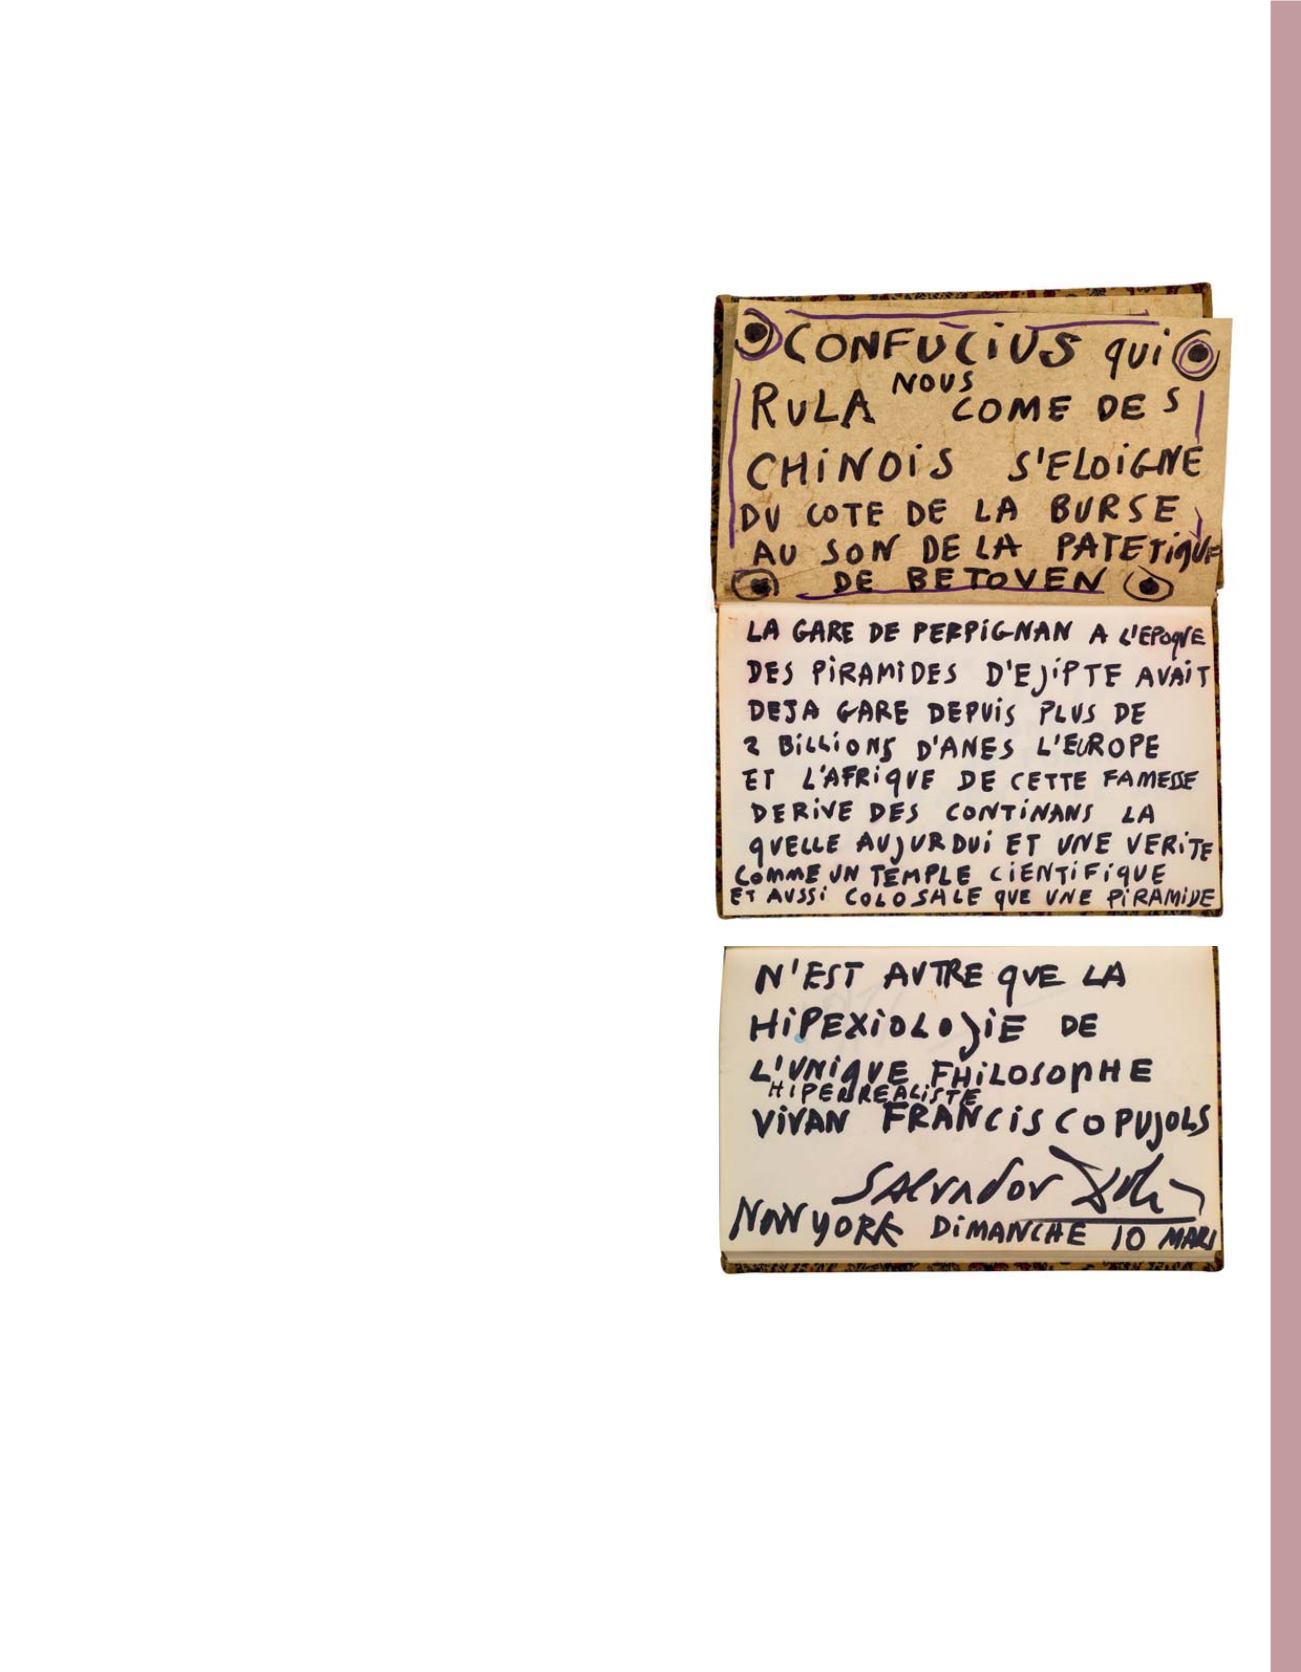 CONFUCiUS qui
RULA NOUS COME DES
CHiNOiS S'ELOiGNE
DU COTE DE LA BURSE
AU SON DE LA PATETiqUE
DE BETOVEN
LA GARE DE PERPiGNAN A L'EPOqUE
DES PiRAMiDES D'EJiPTE AVAiT
DEJA GARE DEPUiS PLUS DE
2 BiLLiONS D'ANES L'EUROPE
ET L'AFRiqUE DE CETTE FAMESSE
DERiVE DES CONTiNANS LA
qUELLE AUJURDUi ET UNE VERiTE
COMME UN TEMPLE CiENTiFiqUE
ET AUSSi COLOSALE qUE UNE PiRAMiDE
N'EST AUTRE qUE LA
HiPEXiOLOJiE DE
L'UNiqUE FHiLOSOPHE
HIPERREALiSTE
ViVAN FRANCiSCO PUJOLS
SALVADOR Dalí
NEW YORK DiMANCHE 10 MARS